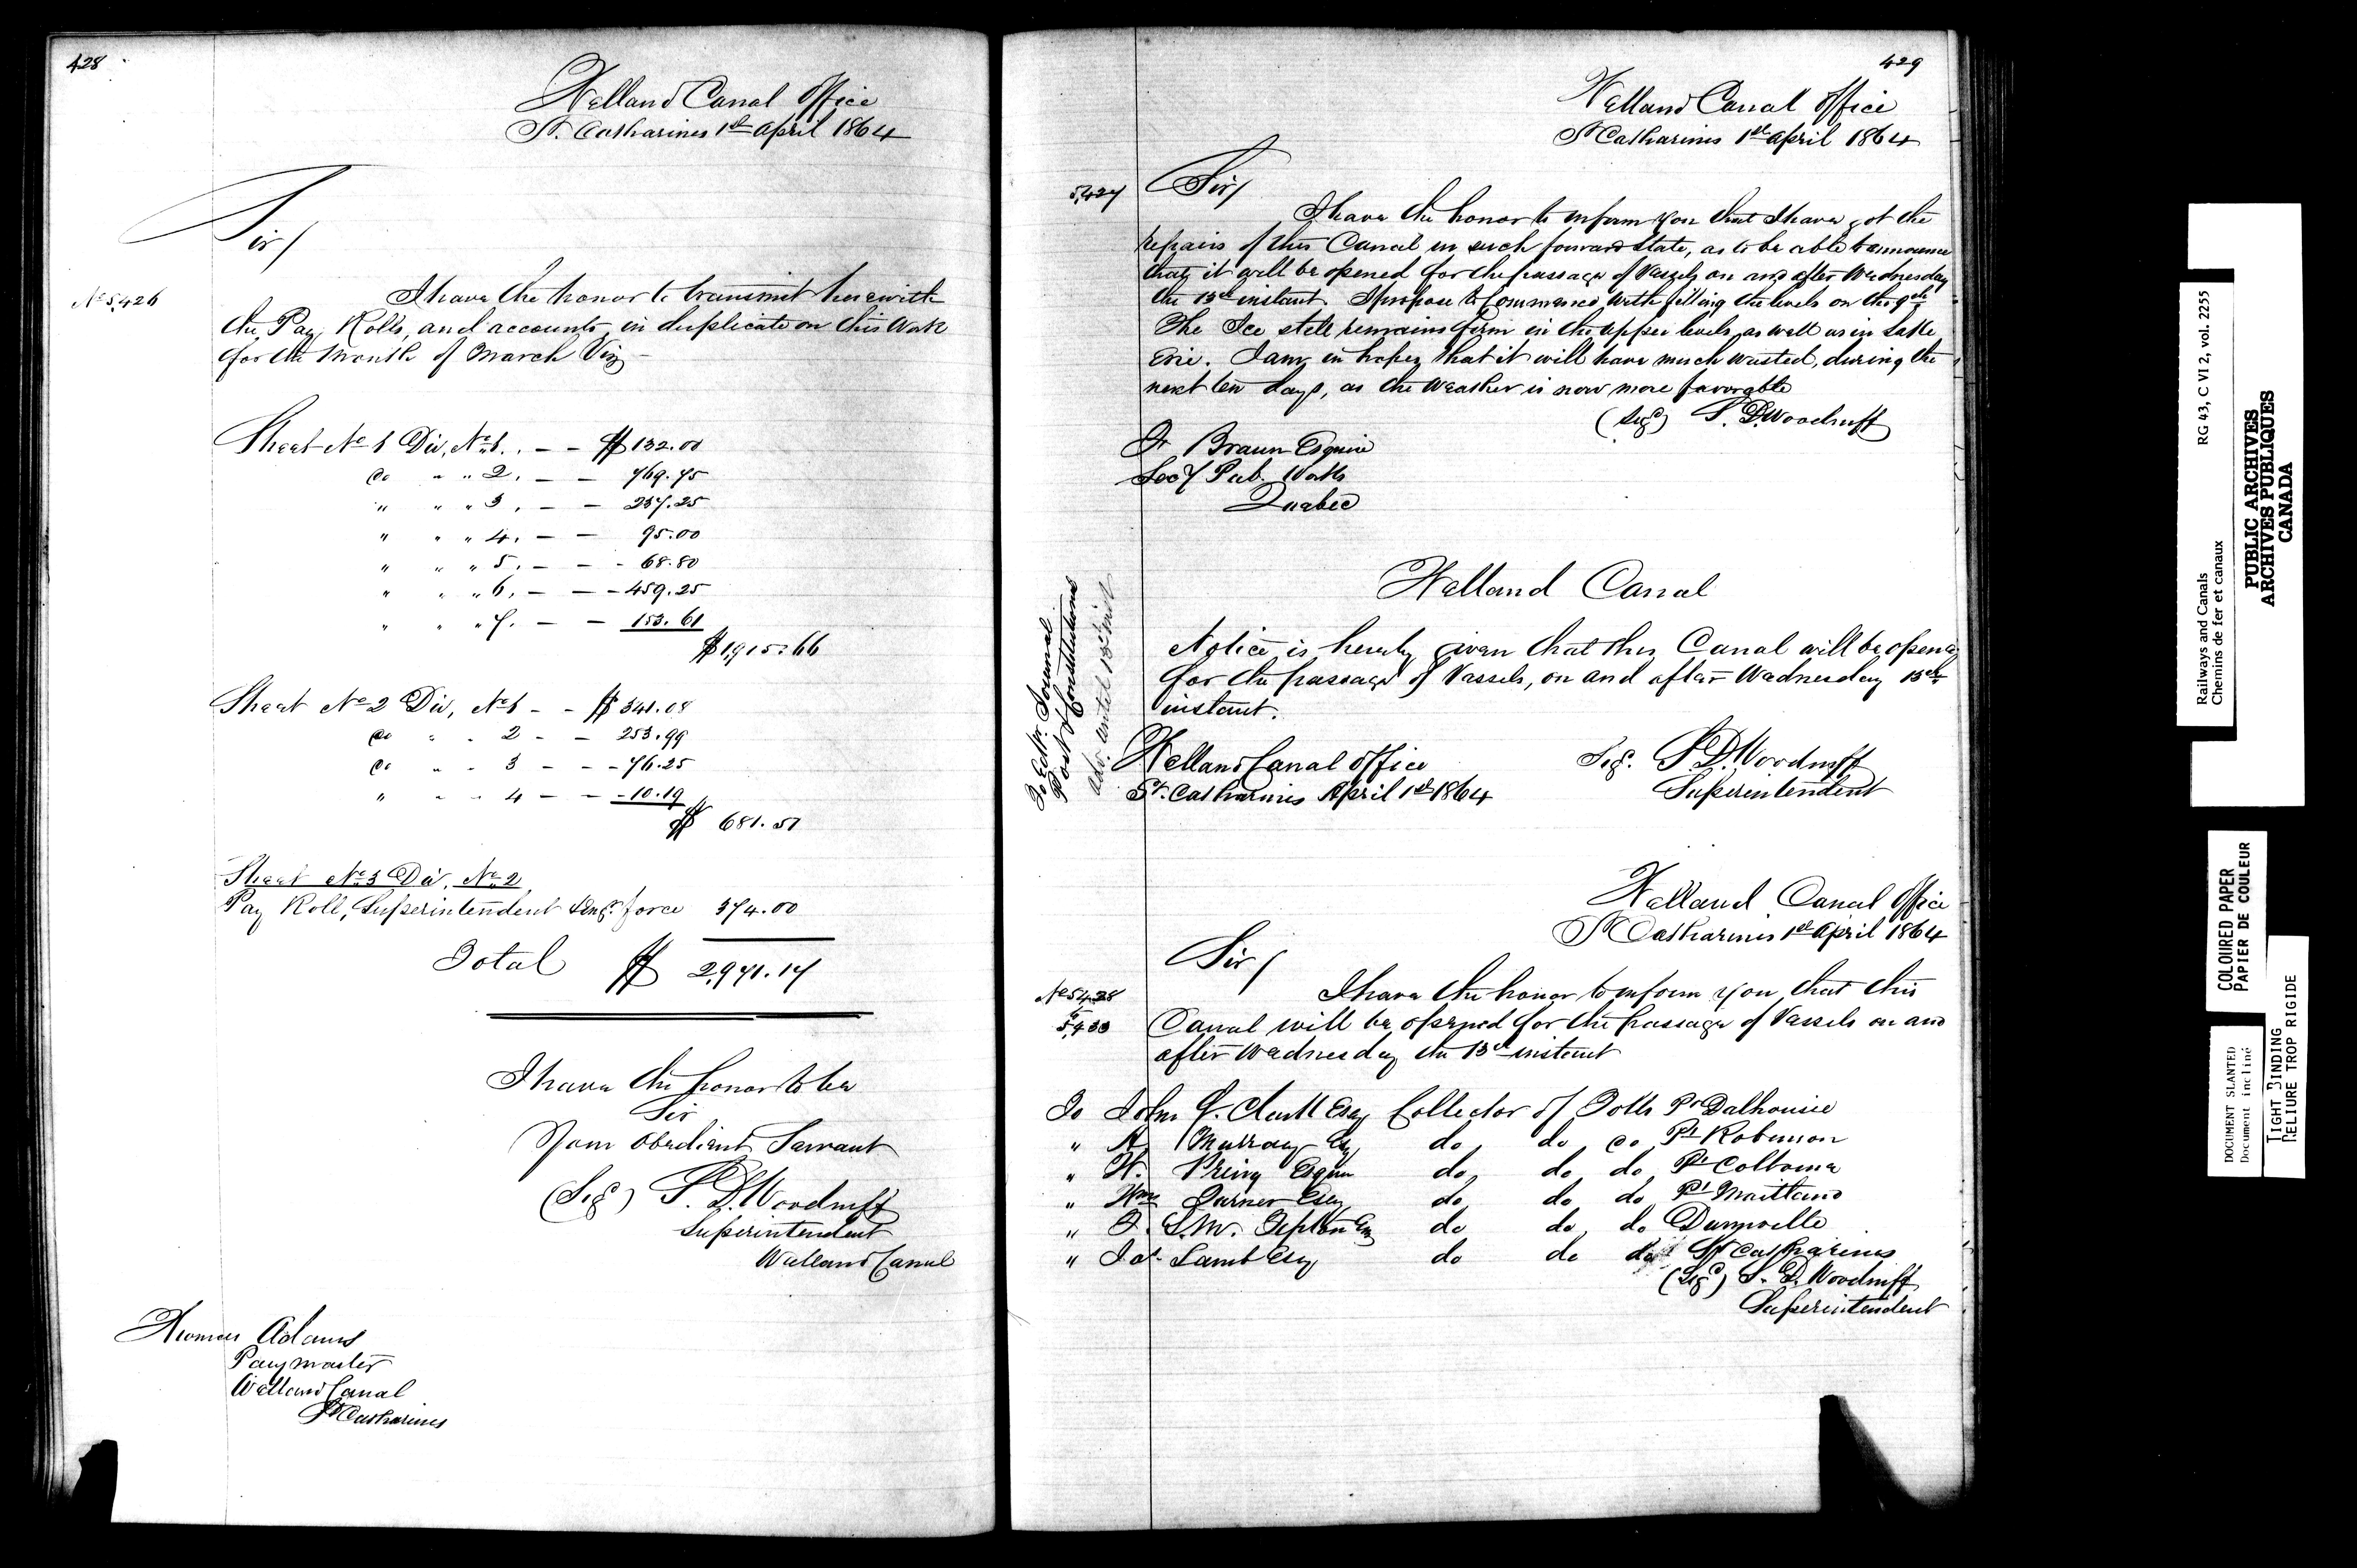 428
Welland Canal Office
St. Catharines 1st April 1864
Sir/
No 5,426
I have the honor to transmit herewith
the Pay Rolls, and accounts, in duplicate on this Work
for the Month of March Viz -
Sheet No 1 Div, No 1. - - $132.00
Do " " 2. - - 769.75
" " " 3. - - 237.25
" " " 4. - - 95.00
" " " 5. - - 68.80
" " " 6. - - 459.25
" " " 7. - - 153.61
$1,915.66
Sheet No 2 Div, No 1 - - $341.08
Do " " 2 - - 253.99
Do " " 3 - - 76.25
" " " 4 - - 10.19
$ 681.51
Sheet No 3 Div. No 2
Pay Roll, Superintendent & Engr. force 374.00
Total $ 2,971.17
I have the honor to be
Sir
Your Obedient Servant
(Sigd) S. D. Woodruff
Superintendent
Welland Canal
Thomas Adams
Paymaster
Welland Canal
St Catharines
429
Welland Canal Office
St Catharines 1st April 1864
5,427
Sir/
I have the honor to inform you that I have got the
repairs of this Canal in such forward state, as to be able to announce
that it will be opened for the passage of Vessels on and after Wednesday
the 13th instant. I propose to Commence with filling the levels on the 9th
The Ice still remains firm in the upper levels, as well as in Lake
Erie. I am in hopes that it will have much wasted, during the
next ten days, as the Weather is now more favorable
(Sigd) S. D. Woodruff
Fr Braun Esquire
Secy Pub. Works
Quebec
Welland Canal
To Edtr. Journal
Post & Constitutional
adv. until 13th inst
Notice is hereby given that this Canal will be opened
for the passage of Vessels, on and after Wednesday 13th
instant.
Welland Canal Office
St. Catharines April 1st 1864
Sigd. S. D. Woodruff
Superintendent
Welland Canal Office
St Catharines 1st April 1864
Sir/
No 5428
to
5,433
I have the honor to inform you, that this
Canal will be opened for the passage of Vessels on and
after Wednesday the 13th instant
To John Clark Esqr Collector of Tolls Pt Dalhousie
" A. Murray Esq do do do Pt Robinson
" H. Pring Esquire do do do Pt Colborne
" Wm Turner Esq do do do Pt Maitland
" do do do Dunnville
" Jas. Lamb Esq do do do St Catharines
(Sigd) S. D. Woodruff
Superintendent
Railways and Canals
Chemins de fer et canaux
RG 43, C VI 2, vol. 2255
PUBLIC ARCHIVES
ARCHIVES PUBLIQUES
CANADA
COLOIRED PAPER
PAPIER DE COULEUR
DOCUMENT SLANTED
Document incliné
TIGHT BINDING
RELIURE TROP RIGIDE